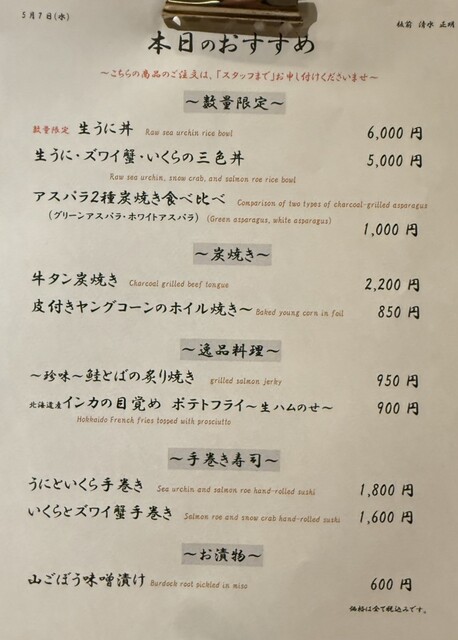 5月7日(水)
板前 清水 正明
本日のおすすめ
～こちらの商品のご注文は、「スタッフまで」お申し付けくださいませ～
～数量限定～
数量限定 生うに丼 Raw sea urchin rice bowl 6,000 円
生うに・ズワイ蟹・いくらの三色丼 5,000 円
Raw sea urchin, snow crab, and salmon roe rice bowl
アスパラ2種炭焼き食べ比べ Comparison of two types of charcoal-grilled asparagus
(グリーンアスパラ・ホワイトアスパラ) (Green asparagus, white asparagus)
1,000 円
～炭焼き～
牛タン炭焼き Charcoal grilled beef tongue 2,200 円
皮付きヤングコーンのホイル焼き～ Baked young corn in foil 850 円
～逸品料理～
～珍味～鮭とばの炙り焼き grilled salmon jerky 950 円
北海道産インカの目覚め ポテトフライ～生ハムのせ～ 900 円
Hokkaido French fries topped with prosciutto
～手巻き寿司～
うにといくら手巻き Sea urchin and salmon roe hand-rolled sushi 1,800 円
いくらとズワイ蟹手巻き Salmon roe and snow crab hand-rolled sushi 1,600 円
～お漬物～
山ごぼう味噌漬け Burdock root pickled in miso 600 円
価格は全て税込みです。